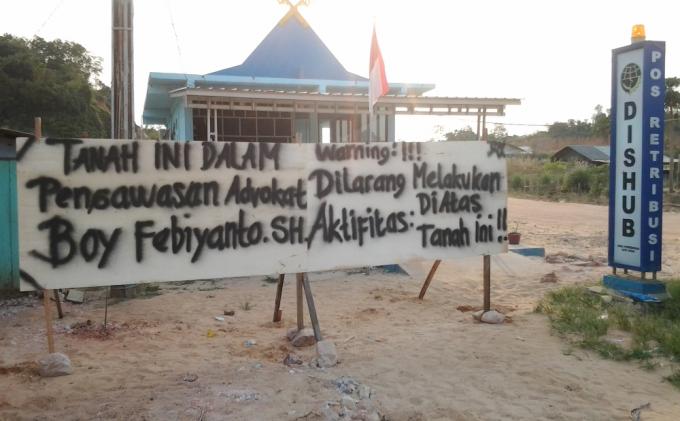 TANAH INI DALAM
Pengawasan Advokat
Boy Febiyanto.SH,
Warning:!!!
Dilarang Melakukan
Aktifitas: DiAtas
Tanah ini!!
DISHUB
POS RETRIBUSI